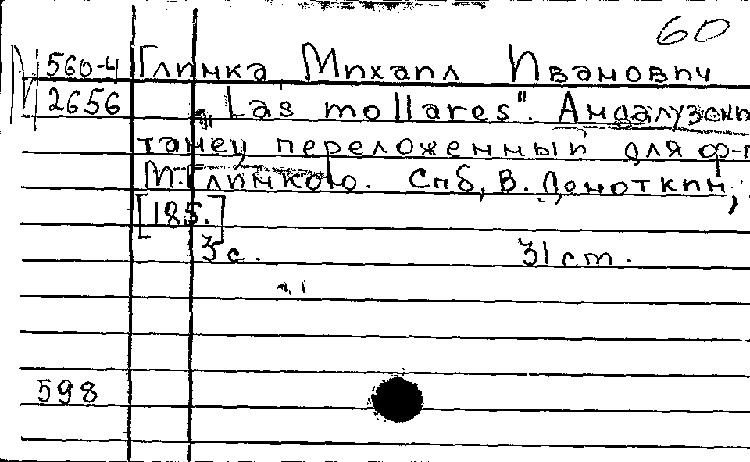 60
М 560-4 Глинка, Михаил Иванович
2656 „Las mollares". Андалузски
танец переложенный для ф-п
М. Глинкою. Спб, В. Деноткин,
[185.]
3 с. 31 ст.
598